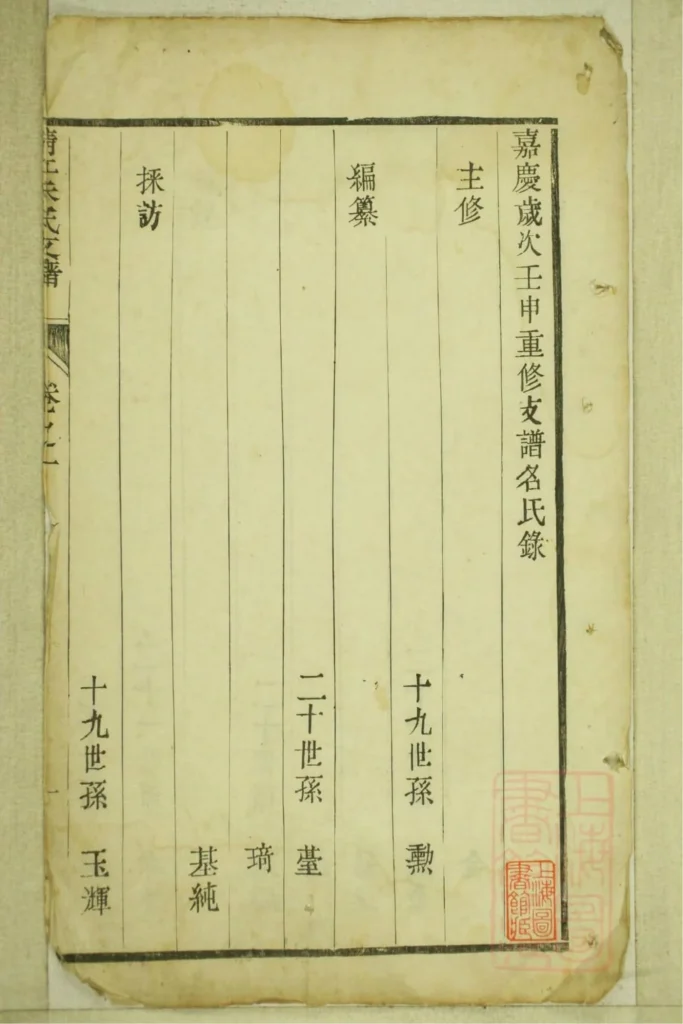 嘉慶歲次壬申重修支譜名氏錄
主修
十九世孫 勲
編纂
二十世孫 𦻏
琦
基純
採訪
十九世孫 玉輝
氏支譜
卷之一
一
上海圖書館藏